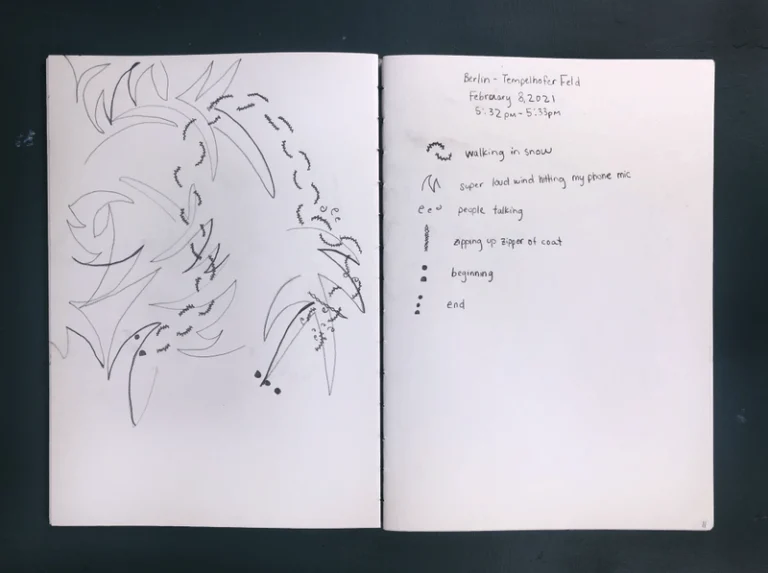 Berlin - Tempelhofer Feld
February 8, 2021
5:32pm - 5:33pm
walking in snow
super loud wind hitting my phone mic
e e
people talking
zipping up zipper of coat
beginning
end